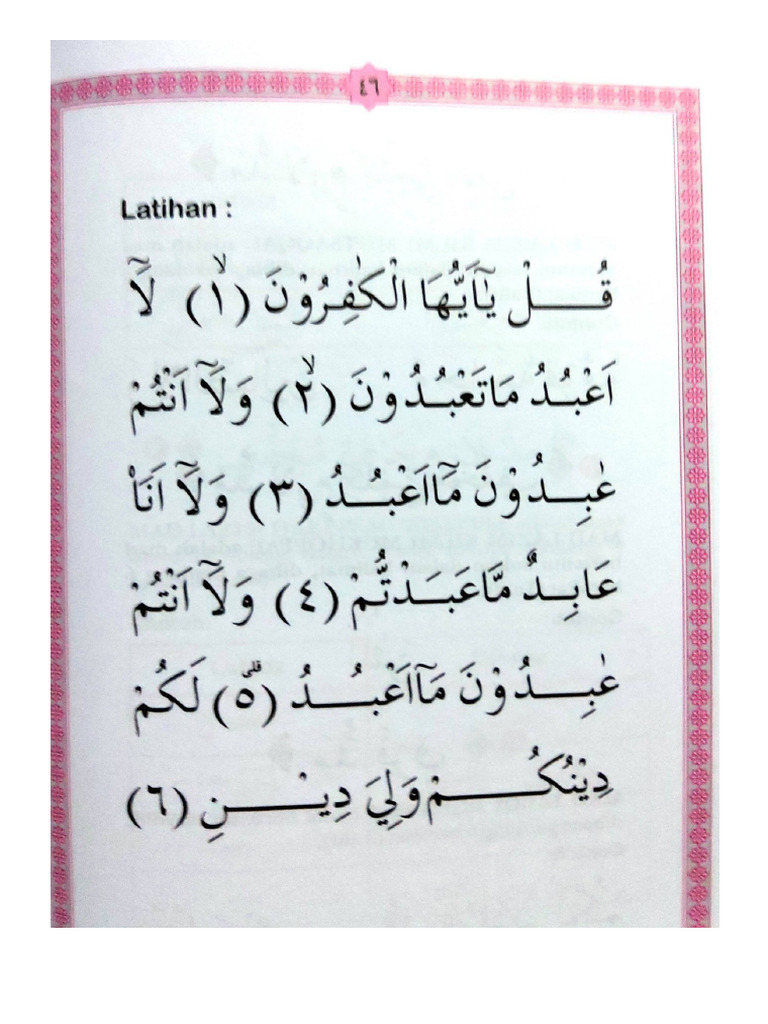 ٤٦
Latihan :
قُلْ يٰٓاَيُّهَا الْكٰفِرُوْنَ (١)ۙ لَآ
اَعْبُدُ مَاتَعْبُدُوْنَ (٢)ۙ وَلَآ اَنْتُمْ
عٰبِدُوْنَ مَآاَعْبُدُ (٣) وَلَآ اَنَا۠
عَابِدٌ مَّاعَبَدْتُّمْ (٤) وَلَآ اَنْتُمْ
عٰبِدُوْنَ مَآاَعْبُدُ (٥)ۗ لَكُمْ
دِيْنُكُمْ وَلِيَ دِيْنِ (٦)